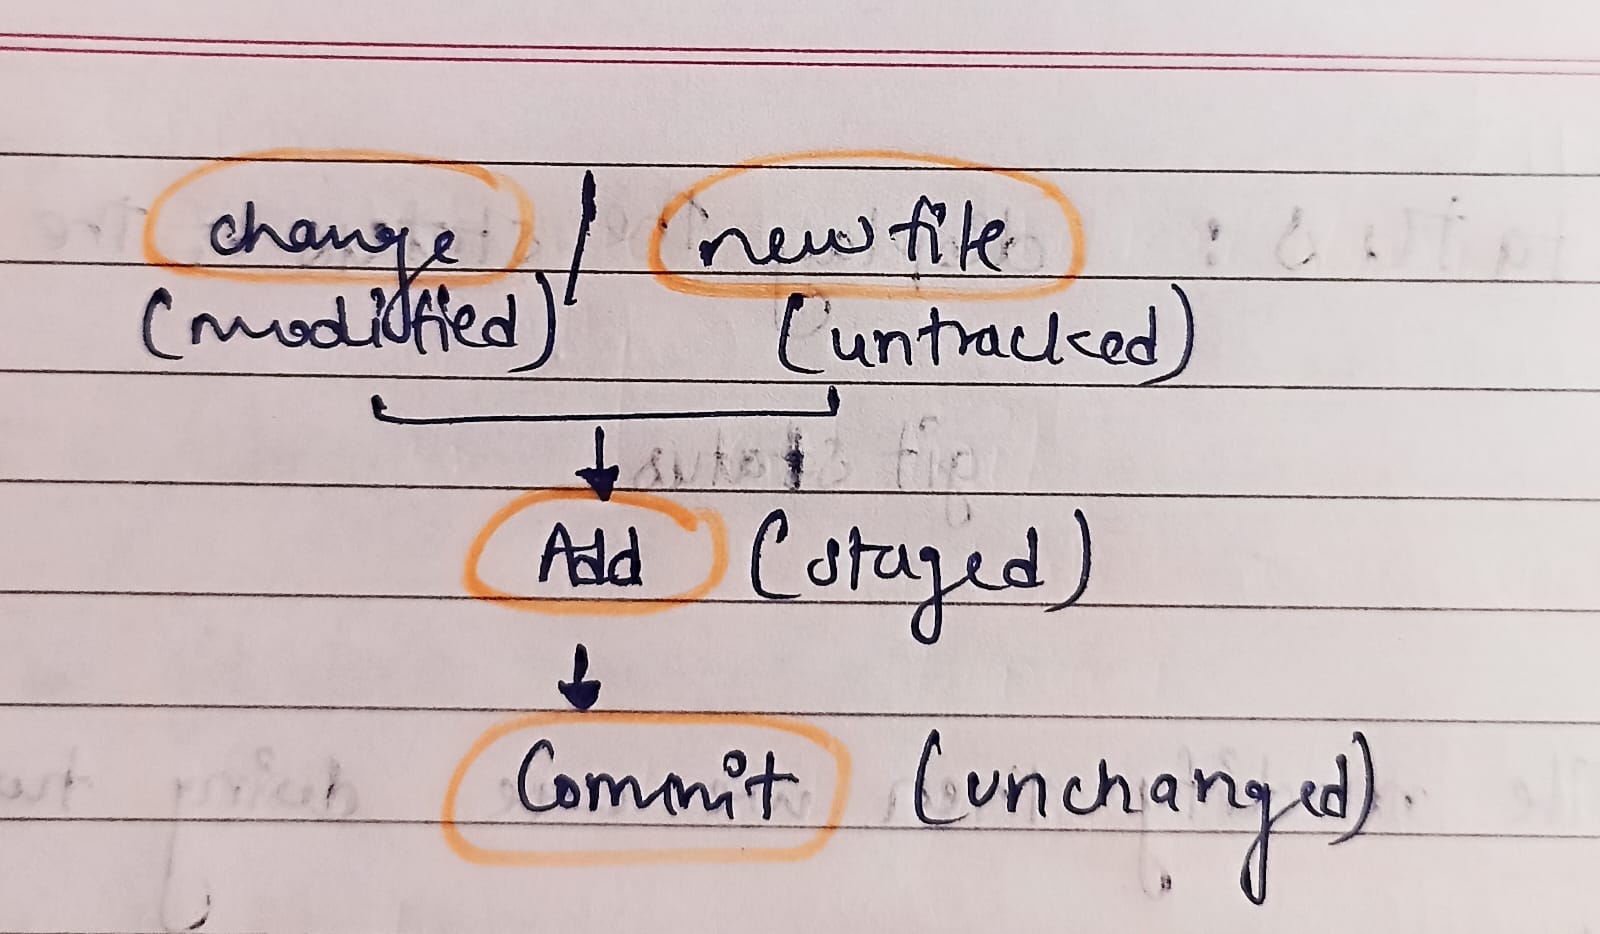 change / new file
(modified) (untracked)
Add (staged)
Commit (unchanged).
git status